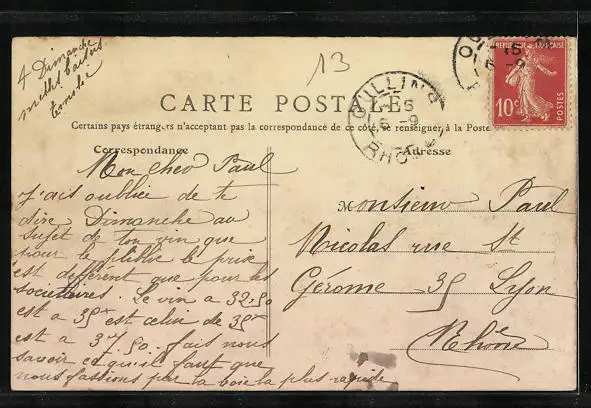 à Dimanche
milles baisers
13
REPUBLIQUE FRANÇAISE
10c
POSTES
OULLINS
15
16-9
RHONE
CARTE POSTALE
Certains pays étrangers n'acceptent pas la correspondance de ce côté, se renseigner à la Poste
Correspondance
Adresse
Mon cher Paul
j'ais oubliée de te
dire Dimanche au
sujet de ton vin que
pour le publue le prix
est different que pour les
societtaires. Le vin a 32.50
est a 35 est celui de 35
est a 37.50. fais nous
savoir ce qu'il faut que
nous fassions par la voie la plus rapide
Monsieur Paul
Nicolas rue St
Gérome 35 Lyon
Rhône